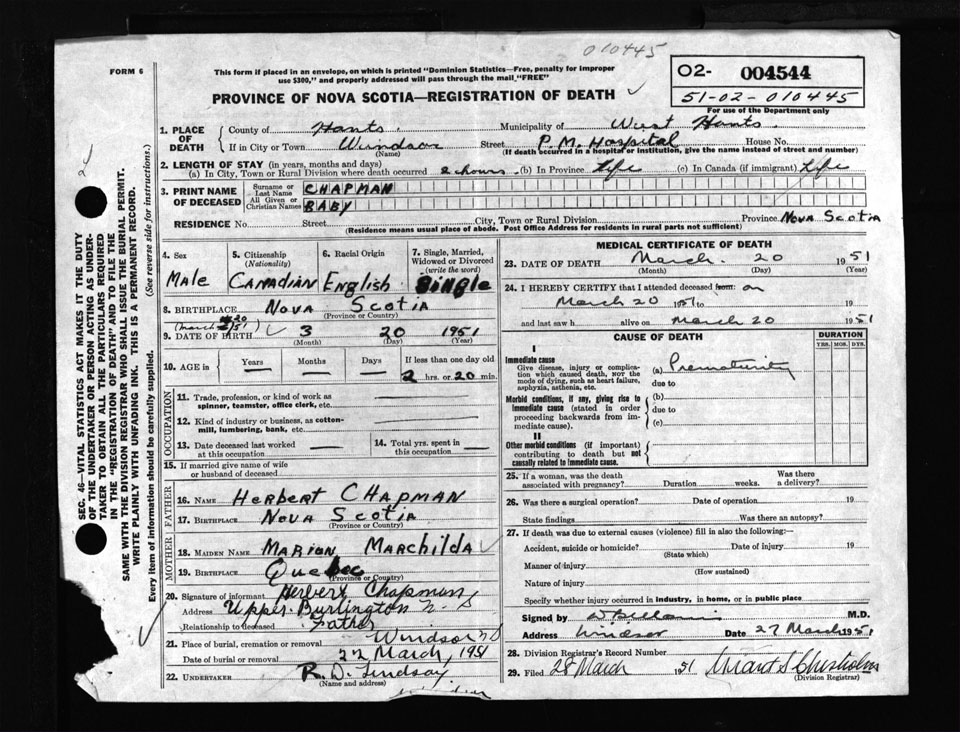 010445
FORM 6
This form if placed in an envelope, on which is printed "Dominion Statistics—Free, penalty for improper
use $300," and properly addressed will pass through the mail "FREE"
O2- 004544
51-02-010445
For use of the Department only
PROVINCE OF NOVA SCOTIA—REGISTRATION OF DEATH
1. PLACE OF DEATH
County of Hants. Municipality of West Hants.
If in City or Town Windsor Street P.M. Hospital House No.
(Name) (If death occurred in a hospital or institution, give the name instead of street and number)
2. LENGTH OF STAY (in years, months and days)
(a) In City, Town or Rural Division where death occurred 2 hours. (b) In Province Life (c) In Canada (if immigrant) Life
3. PRINT NAME OF DECEASED
Surname or Last Name CHAPMAN
All Given or Christian Names BABY
RESIDENCE No. Street City, Town or Rural Division Province Nova Scotia
(Residence means usual place of abode. Post Office Address for residents in rural parts not sufficient)
4. Sex
Male
5. Citizenship
(Nationality)
Canadian
6. Racial Origin
English
7. Single, Married,
Widowed or Divorced
(write the word)
Single
8. BIRTHPLACE Nova Scotia
(Province or Country)
(March 20/51)
9. DATE OF BIRTH 3 20 1951
(Month) (Day) (Year)
10. AGE in
Years Months Days If less than one day old
— — — 2 hrs. or 20 min.
OCCUPATION
11. Trade, profession, or kind of work as
spinner, teamster, office clerk, etc.
12. Kind of industry or business, as cotton-
mill, lumbering, bank, etc.
13. Date deceased last worked
at this occupation
14. Total yrs. spent in
this occupation
15. If married give name of wife
or husband of deceased
FATHER
16. NAME Herbert CHAPMAN
17. BIRTHPLACE Nova Scotia
(Province or Country)
MOTHER
18. MAIDEN NAME Marion Marchilda
19. BIRTHPLACE Quebec
(Province or Country)
20. Signature of informant Herbert Chapman
Address Upper Burlington N. S
Relationship to deceased Father
21. Place of burial, cremation or removal Windsor NS
Date of burial or removal 22 March, 1951
22. UNDERTAKER R. D. Lindsay
(Name and address)
MEDICAL CERTIFICATE OF DEATH
23. DATE OF DEATH March. 20 1951
(Month) (Day) (Year)
24. I HEREBY CERTIFY that I attended deceased from: on
March 20 1951 to 19
and last saw h alive on March 20 1951
CAUSE OF DEATH
DURATION
YRS. MOS. DYS.
I
Immediate cause
Give disease, injury or complica-
tion which caused death, NOT the
mode of dying, such as heart failure,
asphyxia, asthenia, etc.
(a) Prematurity
due to
Morbid conditions, if any, giving rise to
immediate cause (stated in order
proceeding backwards from im-
mediate cause).
(b)
due to
(c)
II
Other morbid conditions (if important)
contributing to death but not
causally related to immediate cause.
25. If a woman, was the death
associated with pregnancy? Duration weeks. Was there
a delivery?
26. Was there a surgical operation? Date of operation 19
State findings Was there an autopsy?
27. If death was due to external causes (violence) fill in also the following:—
Accident, suicide or homicide? Date of injury 19
(State which)
Manner of injury
(How sustained)
Nature of injury
Specify whether injury occurred in industry, in home, or in public place
Signed by M.D.
Address Windsor Date 27 March 1951
28. Division Registrar's Record Number
29. Filed 28 March 1951 Chisholm
(Division Registrar)
SEC. 46—VITAL STATISTICS ACT MAKES IT THE DUTY
OF THE UNDERTAKER OR PERSON ACTING AS UNDER-
TAKER TO OBTAIN ALL THE PARTICULARS REQUIRED
IN THE "REGISTRATION OF DEATH" AND TO FILE THE
SAME WITH THE DIVISION REGISTRAR WHO SHALL ISSUE THE BURIAL PERMIT.
WRITE PLAINLY WITH UNFADING INK. THIS IS A PERMANENT RECORD.
Every item of information should be carefully supplied. (See reverse side for instructions.)